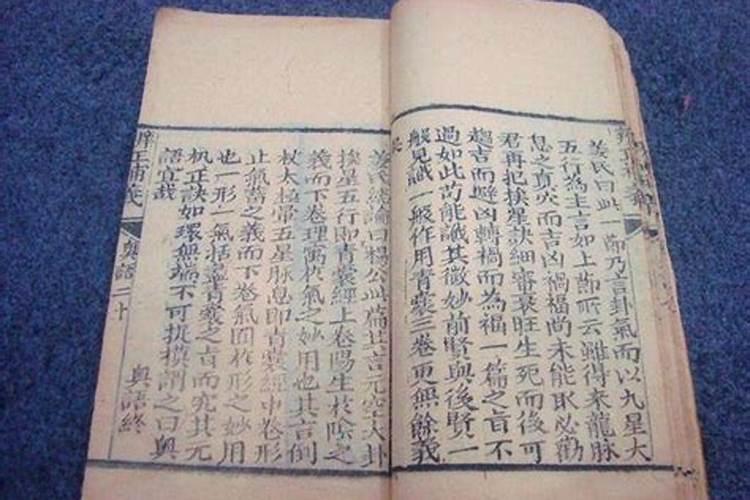 姜氏曰此一節乃言卦氣而以九星大
五行為主言如上節所云雖得來龍脉
息之真穴而吉凶禍福尚未能取必勸
君再把挨星訣細審衰旺生死而後可
趨吉而避凶轉禍而為福一篇之旨不
過如此苟能識其微妙前賢與後賢一
般見識一般作用青囊三卷更無餘義
矣
姜氏總論曰楊公此篇其言元空大卦
挨星五行即青囊經上卷陽生於陰之
義而下卷理寓於氣之妙用也其言倒
杖太極暈五星脉息即青囊經中卷形
止氣蓄之義而下卷氣囿於形之妙用
也一形一氣括盡青囊之旨而究其元
机正訣如環無端不可捉摸謂之曰奧
語宜哉
奧語終
辨正補義 奧語 二十